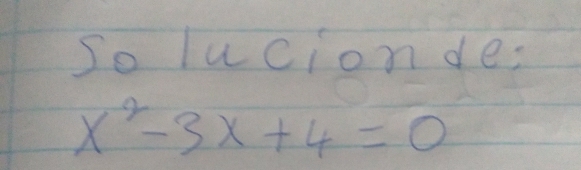 Solucion de:
x²-3x+4=0